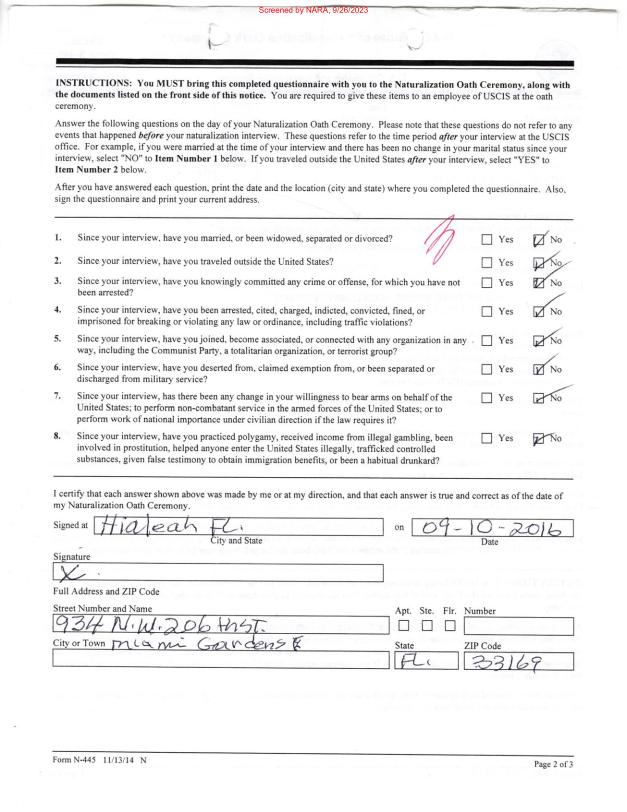 Screened by NARA, 9/26/2023
INSTRUCTIONS: You MUST bring this completed questionnaire with you to the Naturalization Oath Ceremony, along with
the documents listed on the front side of this notice. You are required to give these items to an employee of USCIS at the oath
ceremony.
Answer the following questions on the day of your Naturalization Oath Ceremony. Please note that these questions do not refer to any
events that happened before your naturalization interview. These questions refer to the time period after your interview at the USCIS
office. For example, if you were married at the time of your interview and there has been no change in your marital status since your
interview, select "NO" to Item Number 1 below. If you traveled outside the United States after your interview, select "YES" to
Item Number 2 below.
After you have answered each question, print the date and the location (city and state) where you completed the questionnaire. Also,
sign the questionnaire and print your current address.
1. Since your interview, have you married, or been widowed, separated or divorced? Yes No
2. Since your interview, have you traveled outside the United States? Yes No
3. Since your interview, have you knowingly committed any crime or offense, for which you have not Yes No
been arrested?
4. Since your interview, have you been arrested, cited, charged, indicted, convicted, fined, or Yes No
imprisoned for breaking or violating any law or ordinance, including traffic violations?
5. Since your interview, have you joined, become associated, or connected with any organization in any Yes No
way, including the Communist Party, a totalitarian organization, or terrorist group?
6. Since your interview, have you deserted from, claimed exemption from, or been separated or Yes No
discharged from military service?
7. Since your interview, has there been any change in your willingness to bear arms on behalf of the Yes No
United States; to perform non-combatant service in the armed forces of the United States; or to
perform work of national importance under civilian direction if the law requires it?
8. Since your interview, have you practiced polygamy, received income from illegal gambling, been Yes No
involved in prostitution, helped anyone enter the United States illegally, trafficked controlled
substances, given false testimony to obtain immigration benefits, or been a habitual drunkard?
I certify that each answer shown above was made by me or at my direction, and that each answer is true and correct as of the date of
my Naturalization Oath Ceremony.
Signed at Hialeah FL. on 09-10-2016
City and State Date
Signature
X.
Full Address and ZIP Code
Street Number and Name Apt. Ste. Flr. Number
934 N.W. 206 thST.
City or Town Miami Gardens State ZIP Code
FL. 33169
Form N-445 11/13/14 N Page 2 of 3